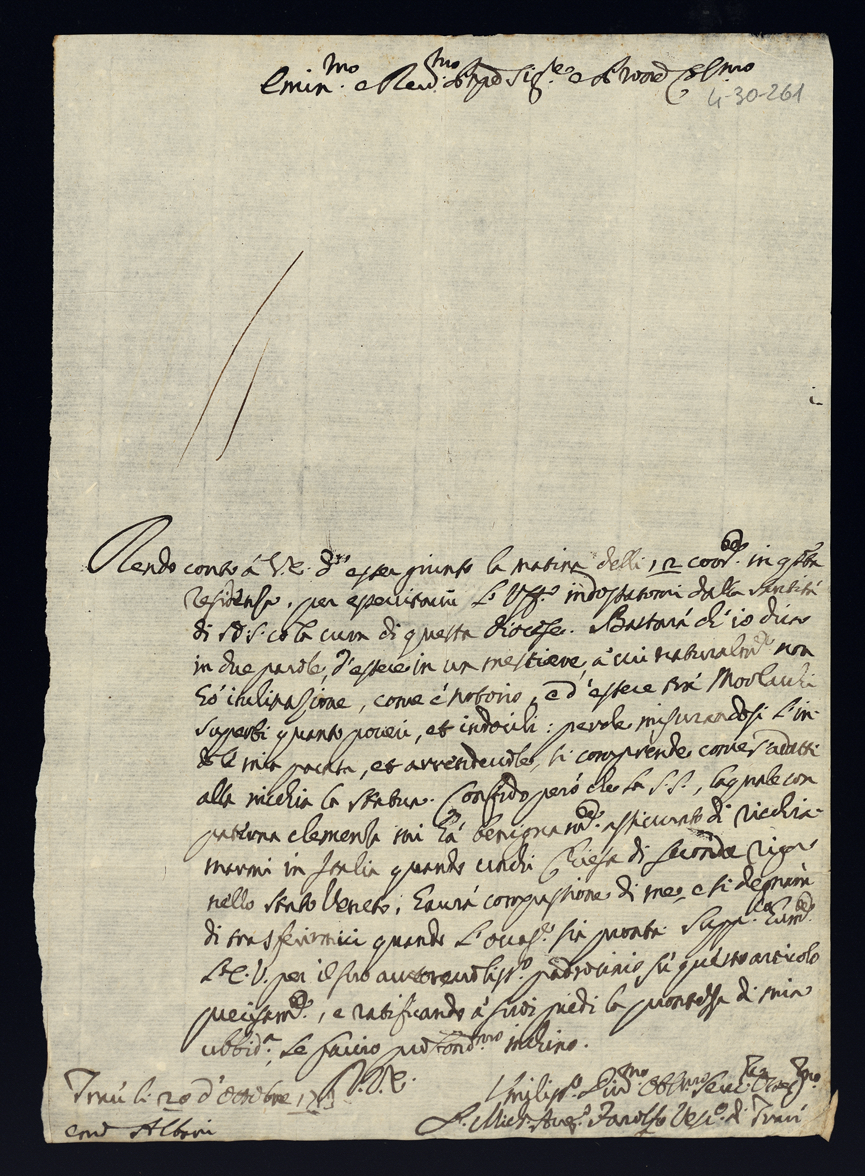 Emin.mo e Rev.mo Sig.re e
4-30-261
Rendo conto à V.E. d'esser giunto la matina delli 12 in q.sta
residenza, per essercitarvi l'Uff.o impostomi dalla Santità
di N.S. cō la cura di questa diocese. Bastarà ch'io dica
in due parole, d'essere in un mestiere, à cui naturalm.te non
hò inclinazione, come è notorio, e d'essere trà Morlachi
superbi quanto poveri, et indocili: perole misurandosi l'in-
mia pacata, et arrendevole, si comprende come s'adatti
alla nicchia la statua. Confido però che la S.S., la quale con
paterna clemenza mi hà benignam.te assicurato di richia-
marmi in Italia quando vachi Chiesa di seconda riga
nello Stato Veneto, haurà compassione di me, e si degnarà
di trasferirmici quando l'occas.e sia pronta. Supp.co hum.te
l'E.V. per il suo autorevoliss.o padrocinio sù questo articolo
precisam.te, e ratificando à suoi piedi la prontezza di mia
ubbid.a, le faccio profond.mo inchino.
D.V.E.
Traù li 20 d'Ottobre 1713
Humiliss.o Div.mo Obb.mo Ser.re
Card Albani
F. Vesc.o di Traù